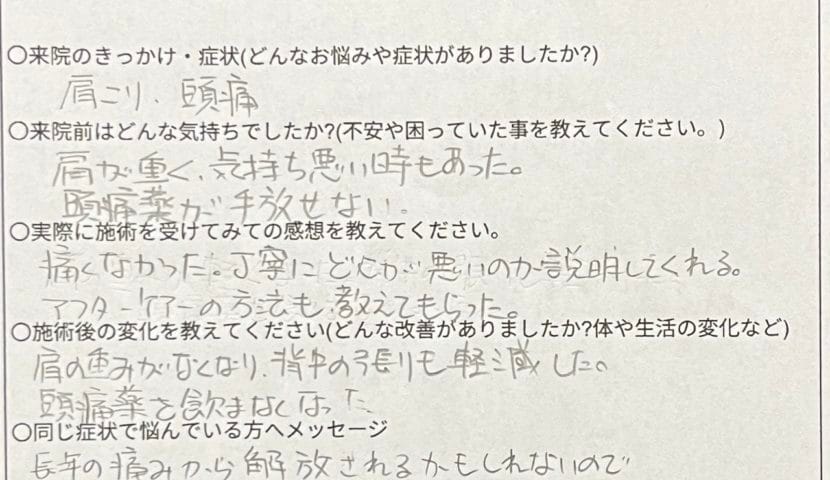 〇来院のきっかけ・症状(どんなお悩みや症状がありましたか?)
肩こり、頭痛
〇来院前はどんな気持ちでしたか?(不安や困っていた事を教えてください。)
肩が重く、気持ち悪い時もあった。
頭痛薬が手放せない。
〇実際に施術を受けてみての感想を教えてください。
痛くなかった。丁寧にどこが悪いのか説明してくれる。
アフターケアーの方法も教えてもらった。
〇施術後の変化を教えてください(どんな改善がありましたか?体や生活の変化など)
肩の重みがなくなり、背中の張りも軽減した。
頭痛薬を飲まなくなった
〇同じ症状で悩んでいる方へメッセージ
長年の痛みから解放されるかもしれないので